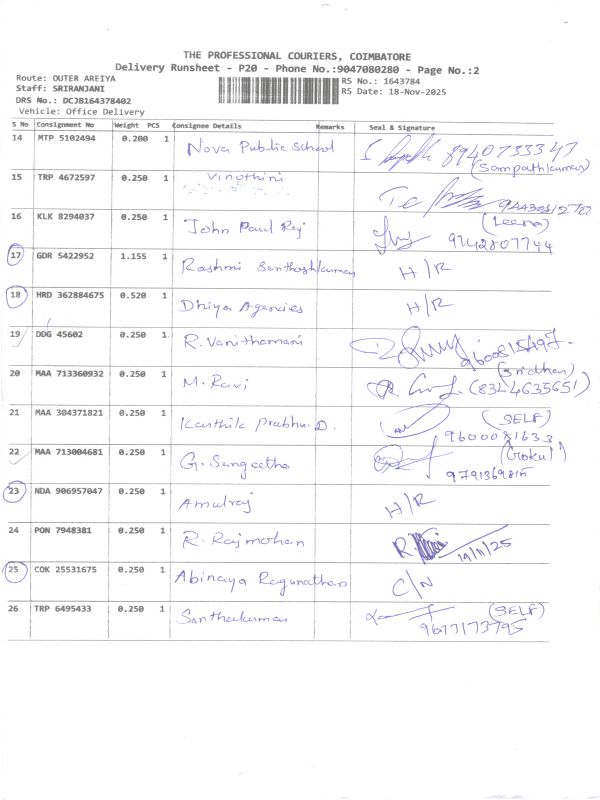 THE PROFESSIONAL COURIERS, COIMBATORE
Delivery Runsheet - P20 - Phone No.:9047080280 - Page No.:2
Route: OUTER AREIYA
RS No.: 1643784
Staff: SRIRANJANI
RS Date: 18-Nov-2025
DRS No.: DCJB164378402
Vehicle: Office Delivery
S No Consignment No Weight PCS Consignee Details Remarks Seal & Signature
14 MTP 5102494 0.200 1 Nova Public School 8940733347
(Sampathkumar)
15 TRP 4672597 0.250 1 Vinothini
16 KLK 8294037 0.250 1 John Paul Raj (Leena)
9742807744
17 GDR 5422952 1.155 1 Rashmi Santhoshkumar H/R
18 HRD 362884675 0.520 1 Dhiya Agencies H/R
19 DDG 45602 0.250 1 R. Vanithamani
(Sridhar)
20 MAA 713360932 0.250 1 M. Ravi (8344635651)
21 MAA 304371821 0.250 1 Karthik Prabhu. D. (SELF)
9600081633
22 MAA 713004681 0.250 1 G. Sangeetha (Gokul)
9791369815
23 NDA 906957047 0.250 1 Amulraj H/R
24 PON 7948381 0.250 1 R. Rajmohan 19/11/25
25 COK 25531675 0.250 1 Abinaya Regunathan C/N
26 TRP 6495433 0.250 1 Santhakumar (SELF)
9677173795